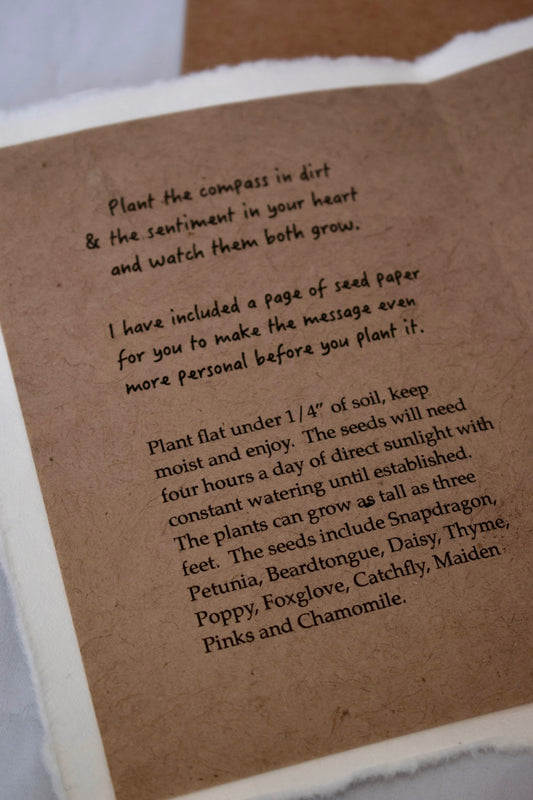 Plant the compass in dirt
& the sentiment in your heart
and watch them both grow.
I have included a page of seed paper
for you to make the message even
more personal before you plant it.
Plant flat under 1/4" of soil, keep
moist and enjoy. The seeds will need
four hours a day of direct sunlight with
constant watering until established.
The plants can grow as tall as three
feet. The seeds include Snapdragon,
Petunia, Beardtongue, Daisy, Thyme,
Poppy, Foxglove, Catchfly, Maiden
Pinks and Chamomile.